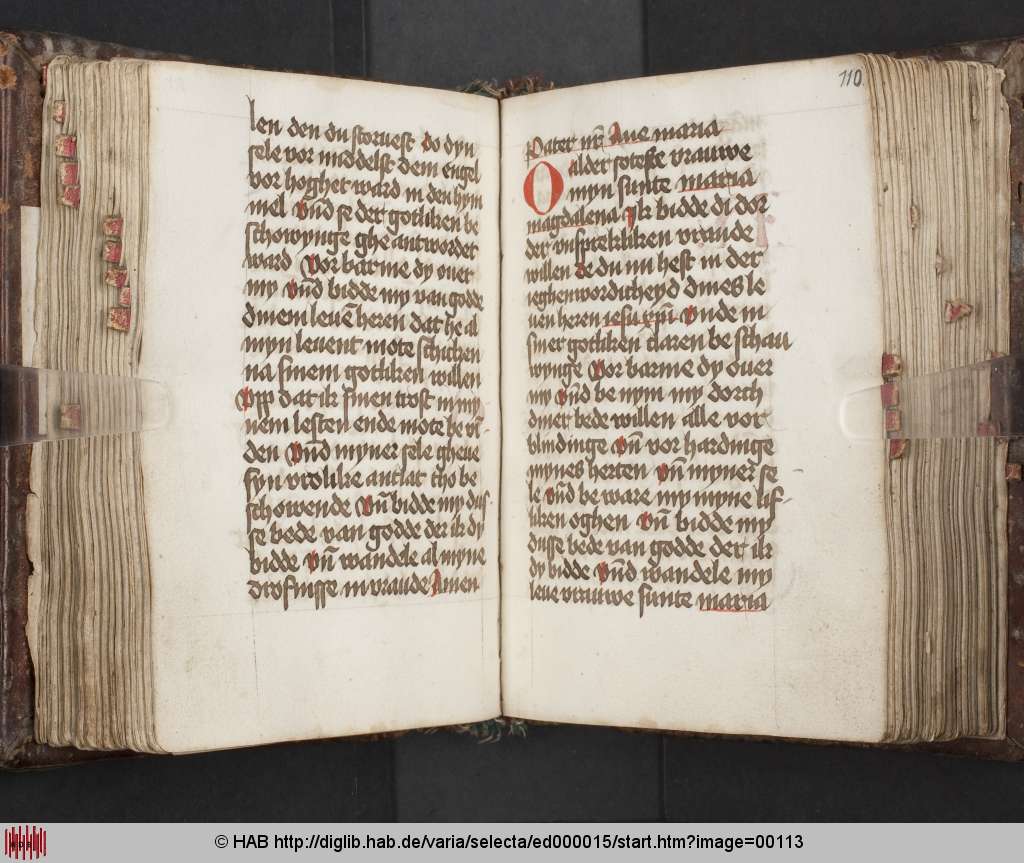 len den du storuest do dyn
sele vor middelst dem engel
vor hoghet ward in den hym
mel Vnd se der gotliken be
schowynge ghe antwordet
ward Vor barme dy ouer
my Vnd bidde my van godde
dinem leuē heren dat he al
myn leuent mote schicken
na sinem gotliken willen
Vpp dat ik sinen trost in my
nem lesten ende mote be vī
den Vnd myner sele gheue
syn vrolike antlat tho be
schowende Vn̄ bidde my dus
se bede van godde der ik dy
bidde Vn̄ wandele al myne
drofnisse in vraude Amen
110
Pater nr̄ Aue maria
O alder soteste vrauwe
myn sunte maria
magdalena Ik bidde di dor
der vnsprekliken vraude
willen de du nu hest in der
ieghenwordicheyd dines le
uen heren iesu xpī Vnde in
siner gotliken claren be schau
wynge Vor barme dy ouer
my Vnd be nym my dorch
diner bede willen alle vor
blindinge Vn̄ vor hardinge
mynes herten Vn̄ myner se
le Vnd be ware my myne lif
liken oghen Vn̄ bidde my
dusse bede van godde der ik
dy bidde Vnd wandele my
leue vrauwe sunte maria
© HAB http://diglib.hab.de/varia/selecta/ed000015/start.htm?image=00113